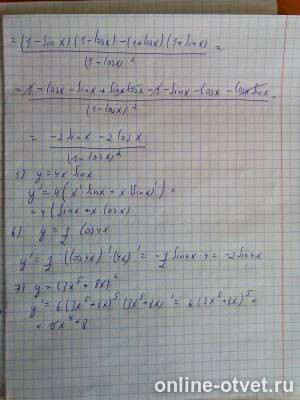 = \frac{(1-sin x)(1-cos x)-(1+cos x)(1+sin x)}{(1-cos x)^2} =
= \frac{1-cos x-sin x+sin x cos x-1-sin x-cos x-cos x sin x}{(1-cos x)^2} =
= \frac{-2 sin x-2 cos x}{(1-cos x)^2}
5) y = 4x sin x
y' = 4(x' sin x + x(sin x)') =
= 4(sin x + x cos x)
6) y = \frac{1}{2} cos 4x
y' = \frac{1}{2} (cos 4x)' (4x)' = -\frac{1}{2} sin 4x · 4 = -2 sin 4x
7) y = (3x^5 + 8x)^6
y' = 6(3x^5 + 8x)^5 (3x^5 + 8x)' = 6(3x^5 + 8x)^5 ×
× 15x^4 + 8
online-otvet.ru